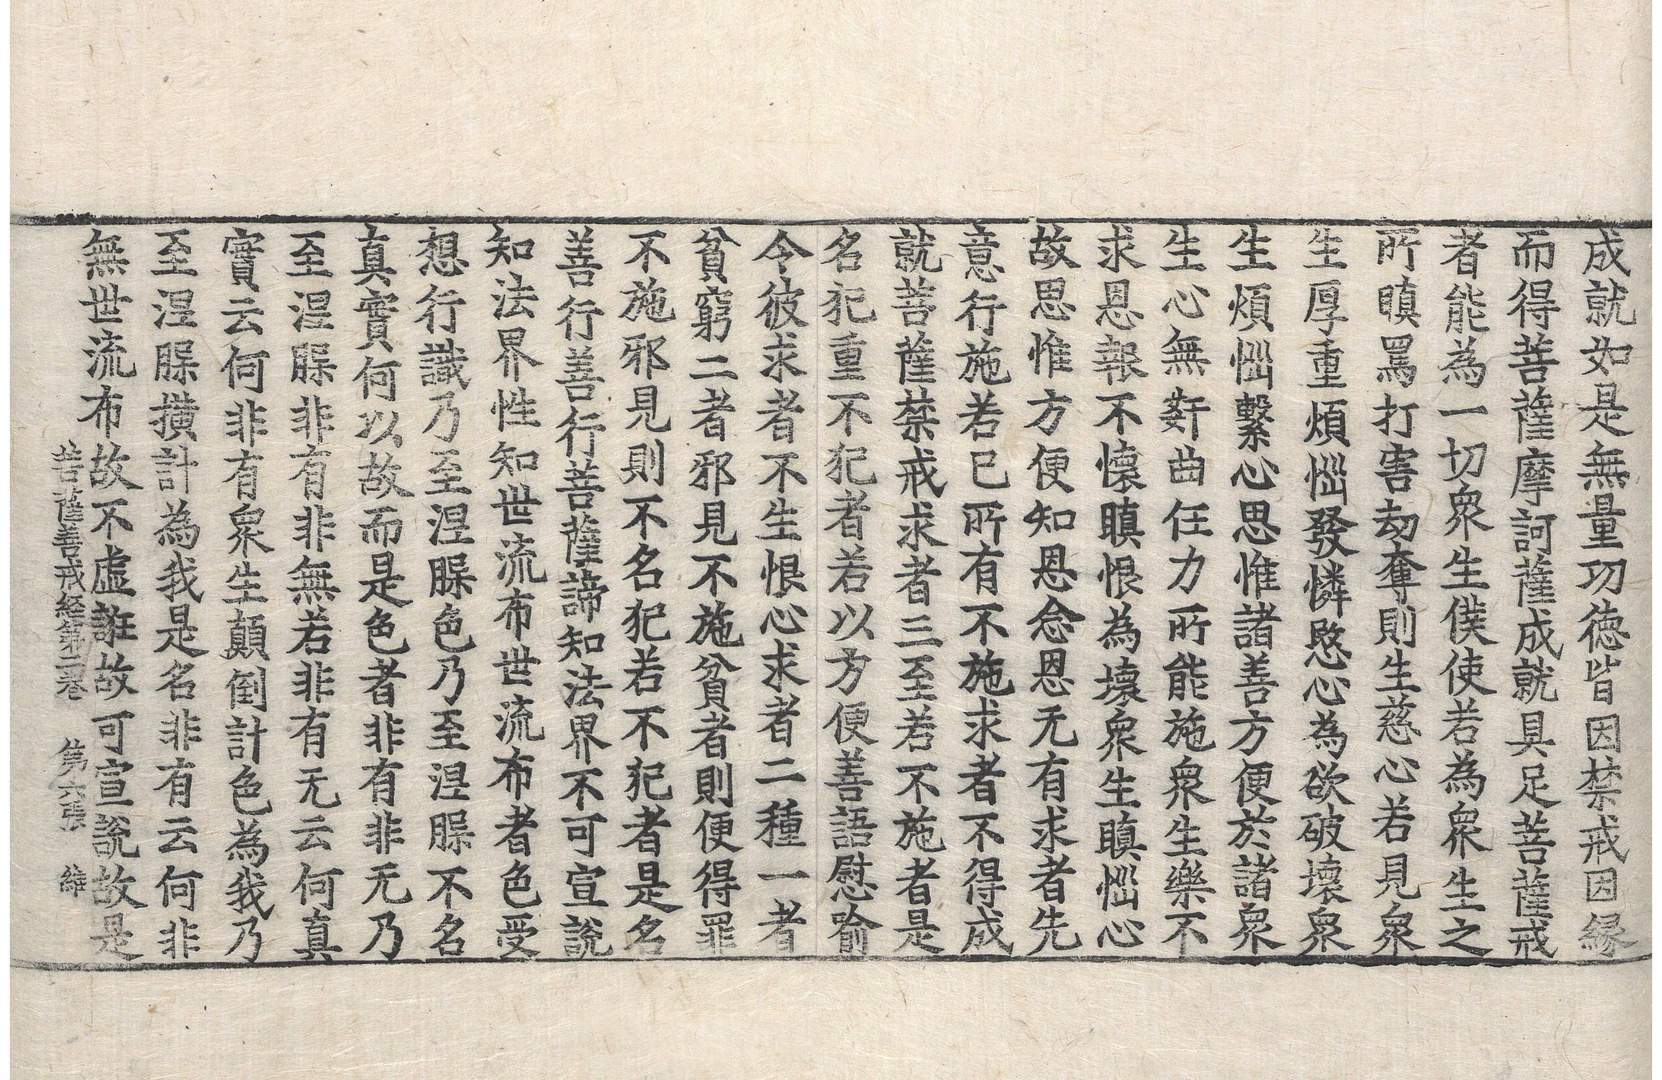 成就如是無量功德皆因禁戒因縁
而得菩薩摩訶薩成就具足菩薩戒
者能為一切衆生僕使若為衆生之
所瞋罵打害劫奪則生慈心若見衆
生厚重煩惱發憐愍心為欲破壞衆
生煩惱繫心思惟諸善方便於諸衆
生心無姧凾任力所能施衆生樂不
求恩報不懐瞋恨為壞衆生瞋惱心
故思惟方便知恩念恩无有求者先
意行施若已所有不施求者不得成
就菩薩禁戒求者三至若不施者是
名犯重不犯者若以方便善語慰喻
令彼求者不生恨心求者二種一者
貧窮二者邪見不施貧者則便得罪
不施邪見則不名犯若不犯者是名
善行善行菩薩諦知法界不可宣說
知法界性知世流布世流布者色受
想行識乃至涅槃色乃至涅槃不名
真實何以故而是色者非有非无乃
至涅槃非有非無若非有无云何真
實云何非有衆生顛倒計色為我乃
至涅槃撗計為我是名非有云何非
無世流布故不虛誑故可宣說故是
菩薩善戒経第二巻 第六張 維